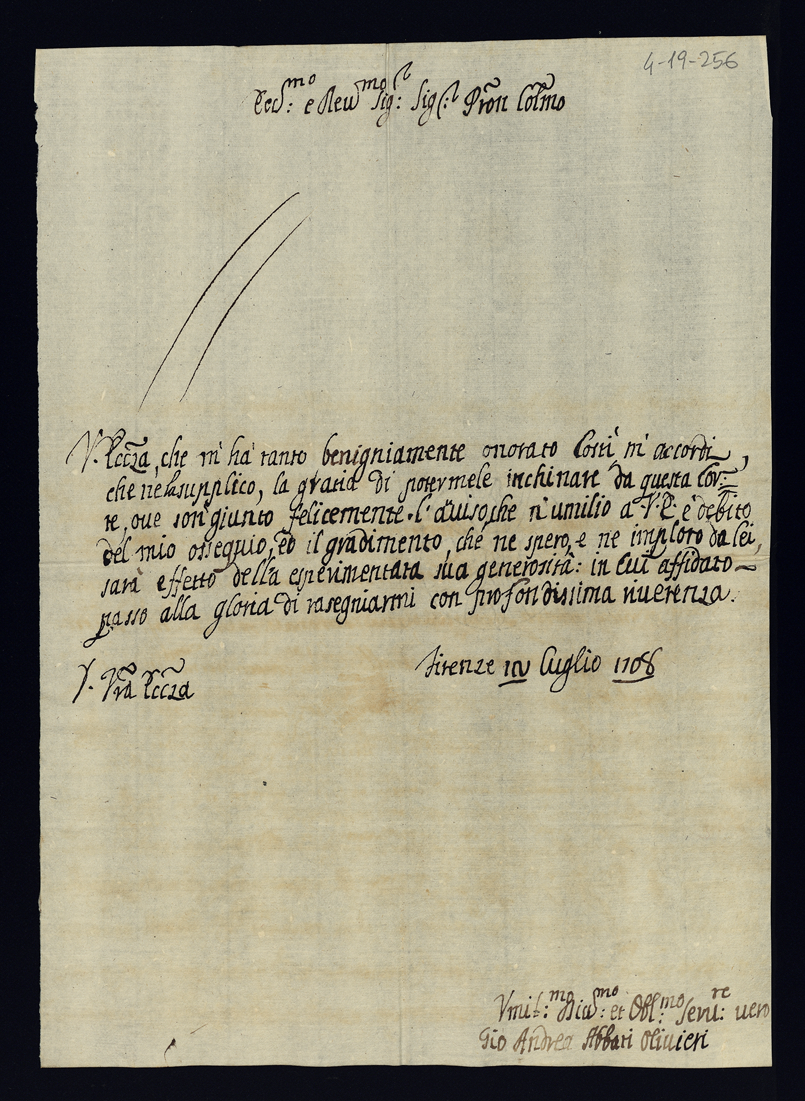 4-19-256
Ecc:mo e Reu:mo Sig:r Sig:r Pron Colmo
V. Eccza, che m' hà tanto benigniamente onorato costì m' accordi,
che ne la supplico, la gratia di potermele inchinare da questa Cor=
te, oue son' giunto felicemente. l' auiso, che n' umilio a V. E. è debito
del mio ossequio, ed il gradimento, che ne spero, e ne imploro da lei,
sarà effetto della esperimentata sua generosità: in cui affidato
passo alla gloria di rasegniarmi con profondissima riuerenza.
V. Vra Eccza
Firenze Luglio 1708
Vmil:mo Diu:mo et Obl:mo Seru:re uero
Gio Andrea Abbati Oliuieri